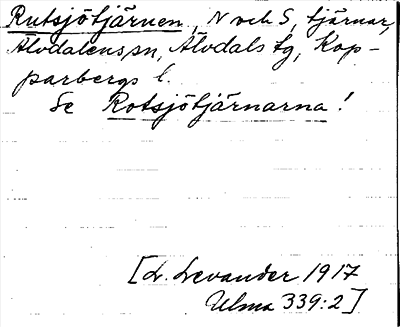 Rutsjötjärnen, N och S, tjärnar,
Älvdalens sn, Älvdals tg, Kop-
parbergs l.
Se Rotsjötjärnarna!
[L. Levander 1917
Ulma 339:2]